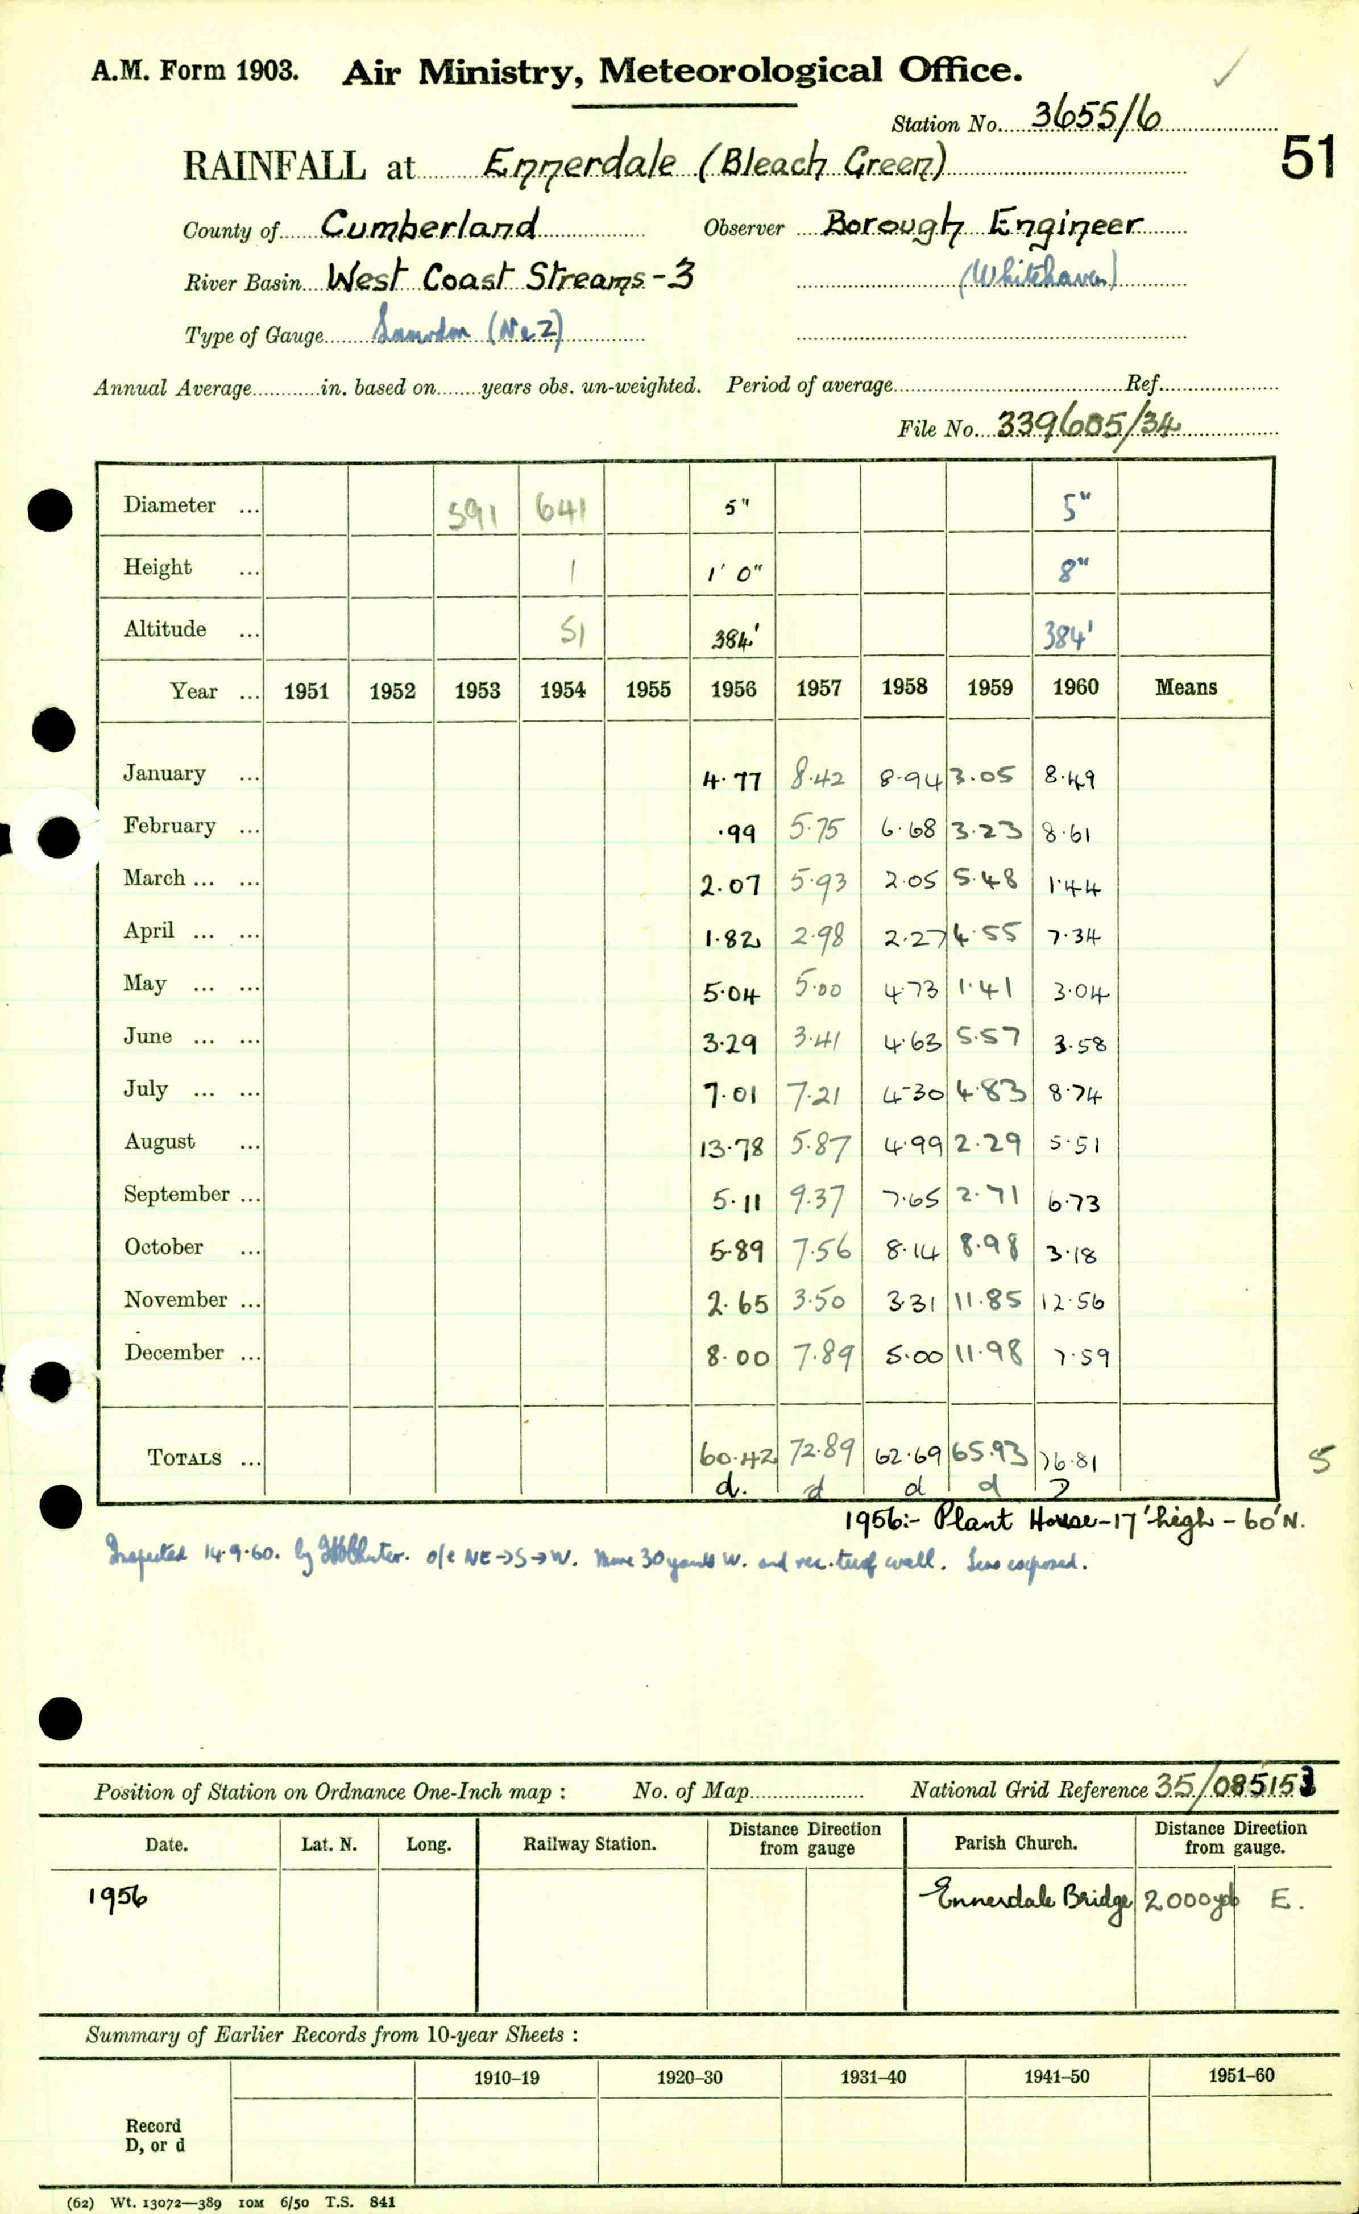 A.M. Form 1903. Air Ministry, Meteorological Office.
Station No. 3655/6
51
RAINFALL at Ennerdale (Bleach Green)
County of Cumberland Observer Borough Engineer
River Basin West Coast Streams - 3 (Whitehaven)
Type of Gauge Snowdon (Ne2)
Annual Average in. based on years obs. un-weighted. Period of average Ref.
File No. 339605/34
Diameter ... 591 641 5" 5"
Height ... 1 1' 0" 8"
Altitude ... 51 384' 384'
Year ... 1951 1952 1953 1954 1955 1956 1957 1958 1959 1960 Means
January ... 4.77 8.42 8.94 3.05 8.49
February ... .99 5.75 6.68 3.23 8.61
March ... ... 2.07 5.93 2.05 5.48 1.44
April ... ... 1.82 2.98 2.27 4.55 7.34
May ... ... 5.04 5.00 4.73 1.41 3.04
June ... ... 3.29 3.41 4.63 5.57 3.58
July ... ... 7.01 7.21 4.30 4.83 8.74
August ... 13.78 5.87 4.99 2.29 5.51
September ... 5.11 9.37 7.65 2.71 6.73
October ... 5.89 7.56 8.14 8.98 3.18
November ... 2.65 3.50 3.31 11.85 12.56
December ... 8.00 7.89 5.00 11.98 7.59
TOTALS ... 60.42 72.89 62.69 65.93 76.81 5
d. d d d D
1956:- Plant House - 17' high - 60' N.
Inspected 14.9.60. by o/e NE→S→W. Move 30 yards W. and rec. turf wall. Less exposed.
Position of Station on Ordnance One-Inch map : No. of Map National Grid Reference 35/085153
Date. Lat. N. Long. Railway Station. Distance Direction from gauge Parish Church. Distance Direction from gauge.
1956 Ennerdale Bridge 2000yds E.
Summary of Earlier Records from 10-year Sheets :
1910–19 1920–30 1931–40 1941–50 1951–60
Record
D, or d
(62) Wt. 13072—389 10M 6/50 T.S. 841